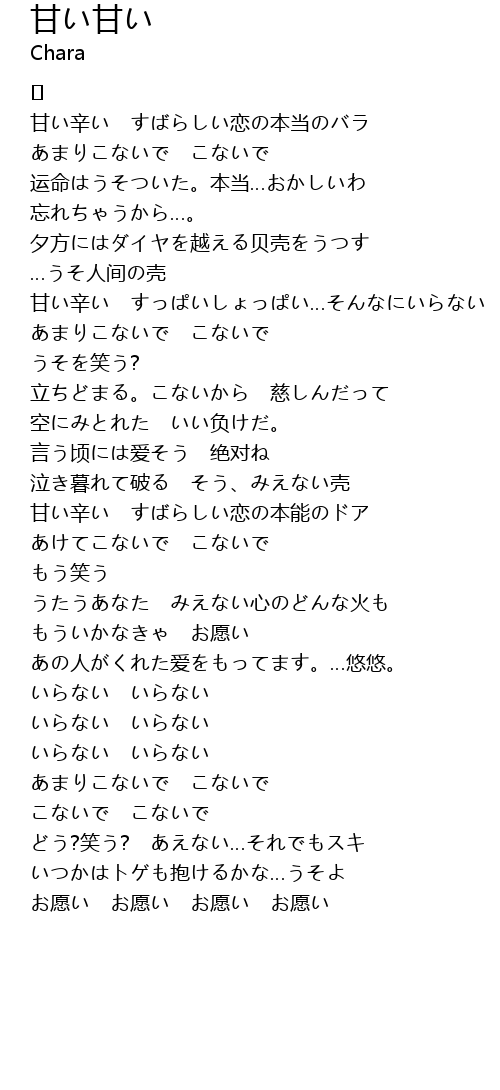 甘い甘い
Chara
[]
甘い辛い　すばらしい恋の本当のバラ
あまりこないで　こないで
运命はうそついた。本当...おかしいわ
忘れちゃうから...。
夕方にはダイヤを越える贝壳をうつす
...うそ人间の壳
甘い辛い　すっぱいしょっぱい...そんなにいらない
あまりこないで　こないで
うそを笑う?
立ちどまる。こないから　慈しんだって
空にみとれた　いい负けだ。
言う顷には爱そう　绝对ね
泣き暮れて破る　そう、みえない壳
甘い辛い　すばらしい恋の本能のドア
あけてこないで　こないで
もう笑う
うたうあなた　みえない心のどんな火も
もういかなきゃ　お愿い
あの人がくれた爱をもってます。...悠悠。
いらない　いらない
いらない　いらない
いらない　いらない
あまりこないで　こないで
こないで　こないで
どう?笑う?　あえない...それでもスキ
いつかはトゲも抱けるかな...うそよ
お愿い　お愿い　お愿い　お愿い